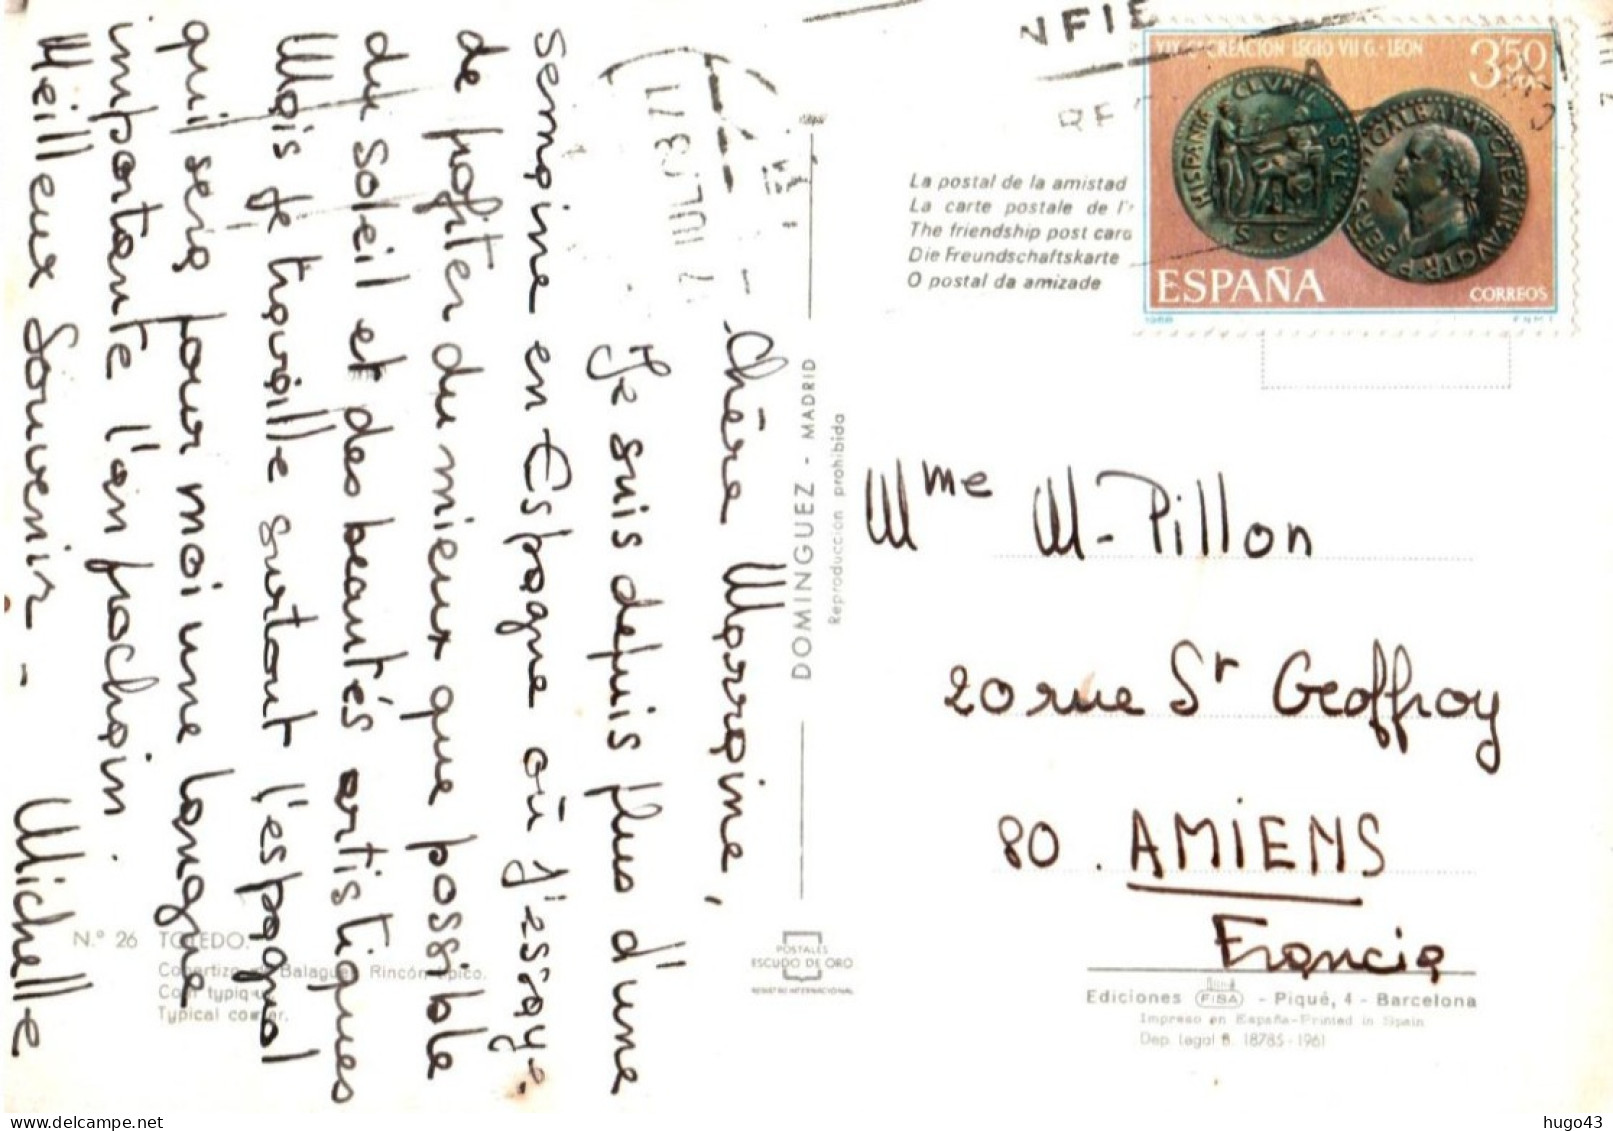 Chère Marraine,
Je suis depuis plus d'une
semaine en Espagne où j'essaye
de profiter du mieux que possible
du soleil et des beautés artistiques
Mais je travaille surtout l'espagnol
qui sera pour moi une langue
importante l'an prochain
Meilleur Souvenir - Michelle
N.º 26 TOLEDO.
Typical corner.
DOMINGUEZ - MADRID
Reproducción prohibida
POSTALES
ESCUDO DE ORO
REGISTRO INTERNACIONAL
La postal de la amistad
La carte postale de l'
The friendship post card
Die Freundschaftskarte
O postal da amizade
NFIE
XIX C. CREACION LEGIO VII G. - LEON
3'50
HISPANIA CLUNIA SUL
S C
SER GALBA IMP CAESAR AUG TR P
ESPAÑA
CORREOS
1968 F.N.M.T.
Mme M-Pillon
20 rue St Geoffroy
80. AMIENS
Francia
Ediciones FISA - Piqué, 4 - Barcelona
Impreso en España-Printed in Spain
Dep. Legal B. 18785-1961
hugo43